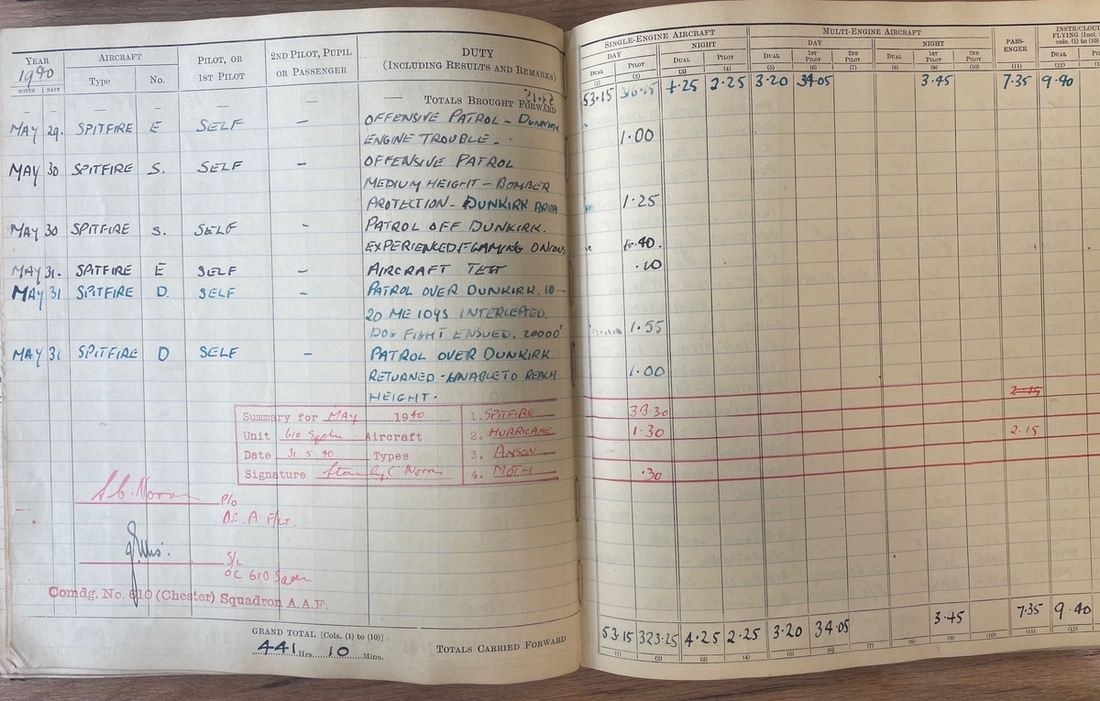 YEAR AIRCRAFT PILOT, OR 1ST PILOT 2ND PILOT, PUPIL OR PASSENGER DUTY (INCLUDING RESULTS AND REMARKS)
1940 Type No.
MONTH DATE
— — — — — — TOTALS BROUGHT FORWARD
MAY 29. SPITFIRE E SELF — OFFENSIVE PATROL - DUNKIRK
ENGINE TROUBLE.
MAY 30 SPITFIRE S. SELF — OFFENSIVE PATROL
MEDIUM HEIGHT - BOMBER
PROTECTION - DUNKIRK AREA
MAY 30 SPITFIRE S. SELF - PATROL OFF DUNKIRK.
EXPERIENCED FLAMING ONIONS
MAY 31. SPITFIRE E SELF — AIRCRAFT TEST
MAY 31 SPITFIRE D. SELF - PATROL OVER DUNKIRK. 10-
20 ME 109S INTERCEPTED.
DOG FIGHT ENSUED. 20000'
MAY 31 SPITFIRE D SELF - PATROL OVER DUNKIRK.
RETURNED - UNABLE TO REACH
HEIGHT.
Summary for MAY 1940 1. SPITFIRE
Unit 610 Sqdn Aircraft 2. HURRICANE
Date 31.5.40. Types 3. ANSON
Signature Stanley C Norris 4. MOTH
S.C. Norris P/O
A F/LT.
S/L
OC 610 Sqdn
Comdg. No. 610 (Chester) Squadron A.A.F.
GRAND TOTAL [Cols. (1) to (10)]
441 Hrs. 10 Mins.
TOTALS CARRIED FORWARD
SINGLE-ENGINE AIRCRAFT MULTI-ENGINE AIRCRAFT PASSENGER
DAY NIGHT DAY NIGHT
DUAL PILOT DUAL PILOT DUAL 1ST PILOT 2ND PILOT DUAL 1ST PILOT 2ND PILOT DUAL
(1) (2) (3) (4) (5) (6) (7) (8) (9) (10) (11) (12)
53.15 4.25 2.25 3.20 34.05 3.45 7.35 9.40
1.00
1.25
.40.
.10
1.55
1.00
2.15
33.30
1.30 2.15
.30
53.15 323.25 4.25 2.25 3.20 34.05 3.45 7.35 9.40
(1) (2) (3) (4) (5) (6) (7) (8) (9) (10) (11) (12)